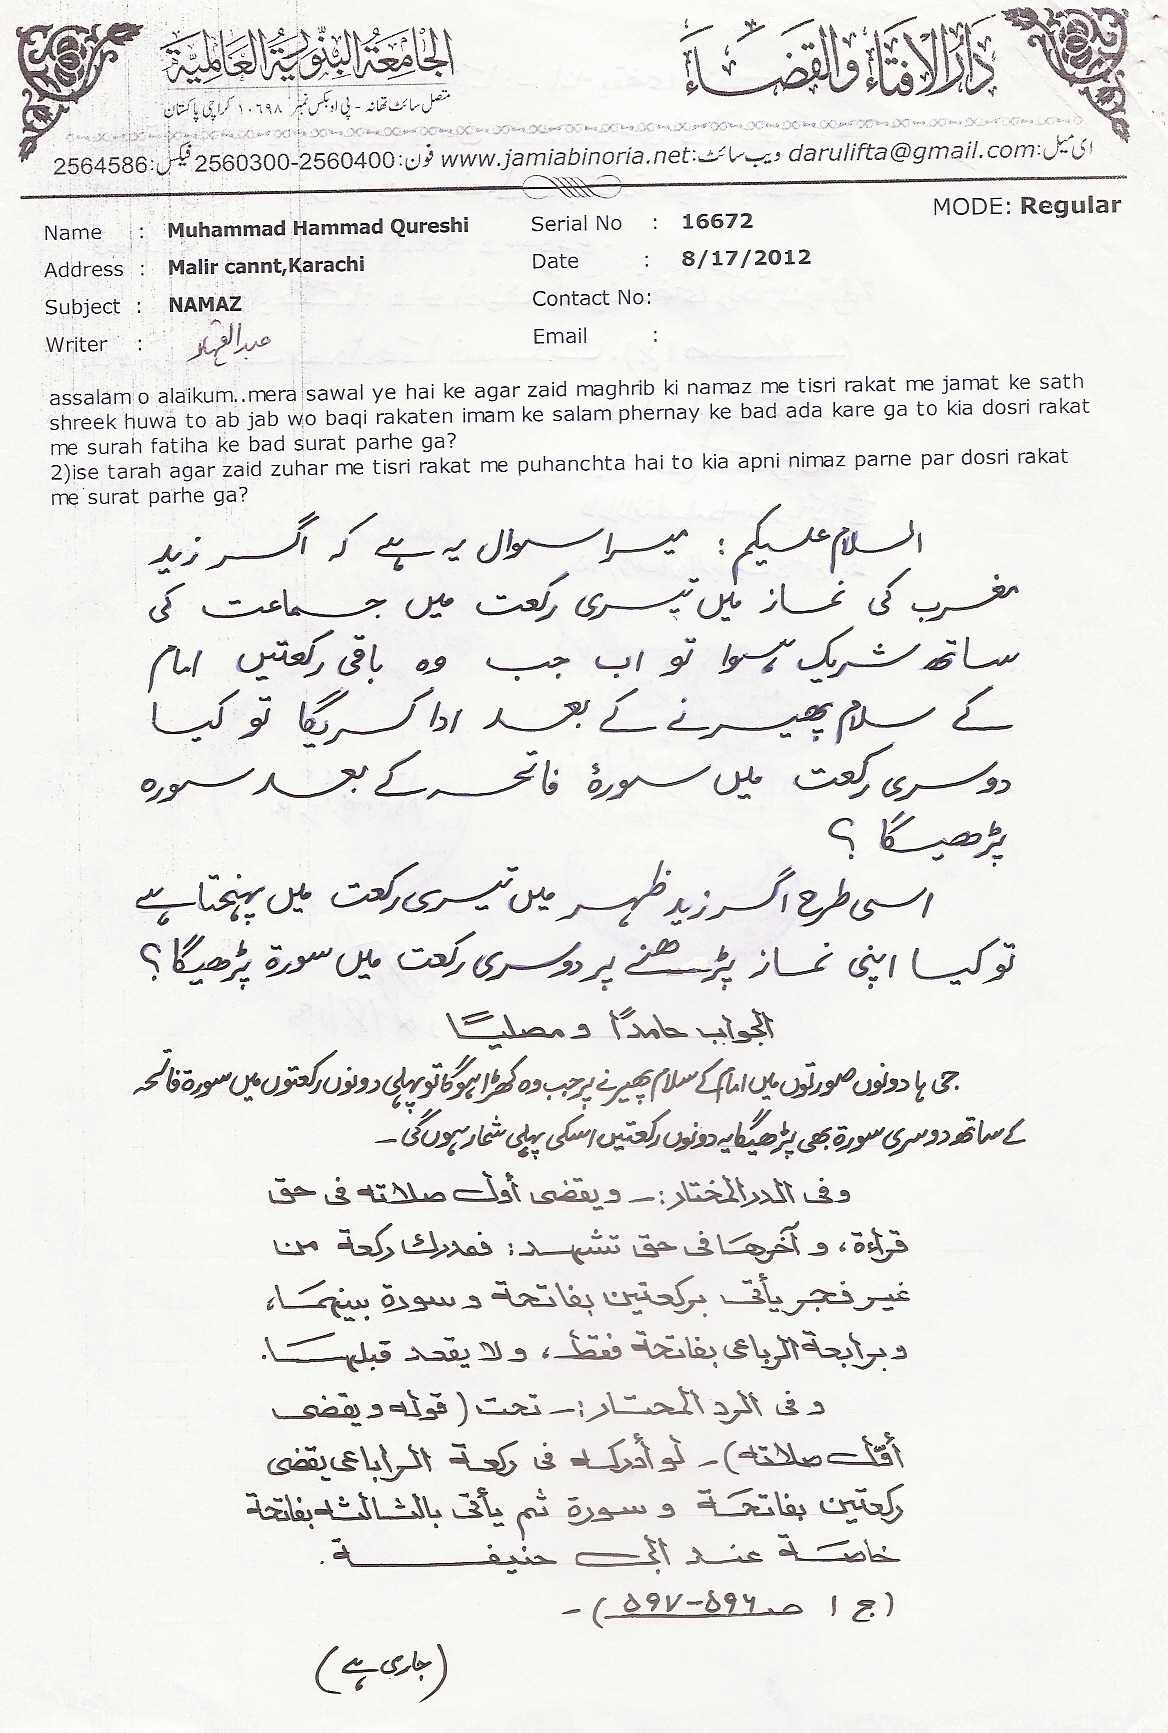 دارالافتاء والقضاء
الجامعة البنورية العالمية
متصل سائٹ تھانہ - پی او بکس نمبر ۱۰۶۹۸ کراچی پاکستان
ای میل:darulifta@gmail.com ویب سائٹ:www.jamiabinoria.net فون:2560300-2560400 فیکس:2564586
MODE: Regular
Name : Muhammad Hammad Qureshi Serial No : 16672
Address : Malir cannt,Karachi Date : 8/17/2012
Subject : NAMAZ Contact No:
Writer : Email :
assalam o alaikum..mera sawal ye hai ke agar zaid maghrib ki namaz me tisri rakat me jamat ke sath
shreek huwa to ab jab wo baqi rakaten imam ke salam phernay ke bad ada kare ga to kia dosri rakat
me surah fatiha ke bad surat parhe ga?
2)ise tarah agar zaid zuhar me tisri rakat me puhanchta hai to kia apni nimaz parne par dosri rakat
me surat parhe ga?
السلام علیکم: میرا سوال یہ ہے کہ اگر زید
مغرب کی نماز میں تیسری رکعت میں جماعت کی
ساتھ شریک ہوا تو اب جب وہ باقی رکعتیں امام
کے سلام پھیرنے کے بعد ادا کریگا تو کیا
دوسری رکعت میں سورۂ فاتحہ کے بعد سورہ
پڑھیگا ؟
اسی طرح اگر زید ظہر میں تیسری رکعت میں پہنچتا ہے
تو کیا اپنی نماز پڑھنے پر دوسری رکعت میں سورۃ پڑھیگا؟
الجواب حامدًا و مصلیًا
جی ہا دونوں صورتوں میں امام کے سلام پھیرنے پر جب وہ کھڑا ہوگا تو پہلی دونوں رکعتوں میں سورۃ فاتحہ
کے ساتھ دوسری سورۃ بھی پڑھیگا یہ دونوں رکعتیں اسکی پہلی شمار ہوں گی۔
وفی الدر المختار:۔ ویقضی أول صلاته فی حق
قراءة، و آخرها فی حق تشهد: فمدرك ركعة من
غير فجر يأتی بركعتين بفاتحة و سورة بينهما،
و برابعة الرباعی بفاتحة فقط، و لا يقعد قبلها.
و فی الرد المحتار:۔ تحت (قوله و يقضی
أوّل صلاته)۔ لو أدركه فی ركعة الرباعی يقضی
ركعتين بفاتحة و سورة ثم يأتی بالثالثة بفاتحة
خاصة عند ابی حنيفة.
(ج ۱ صـ ۵۹۶-۵۹۷)۔
(جاری ہے)